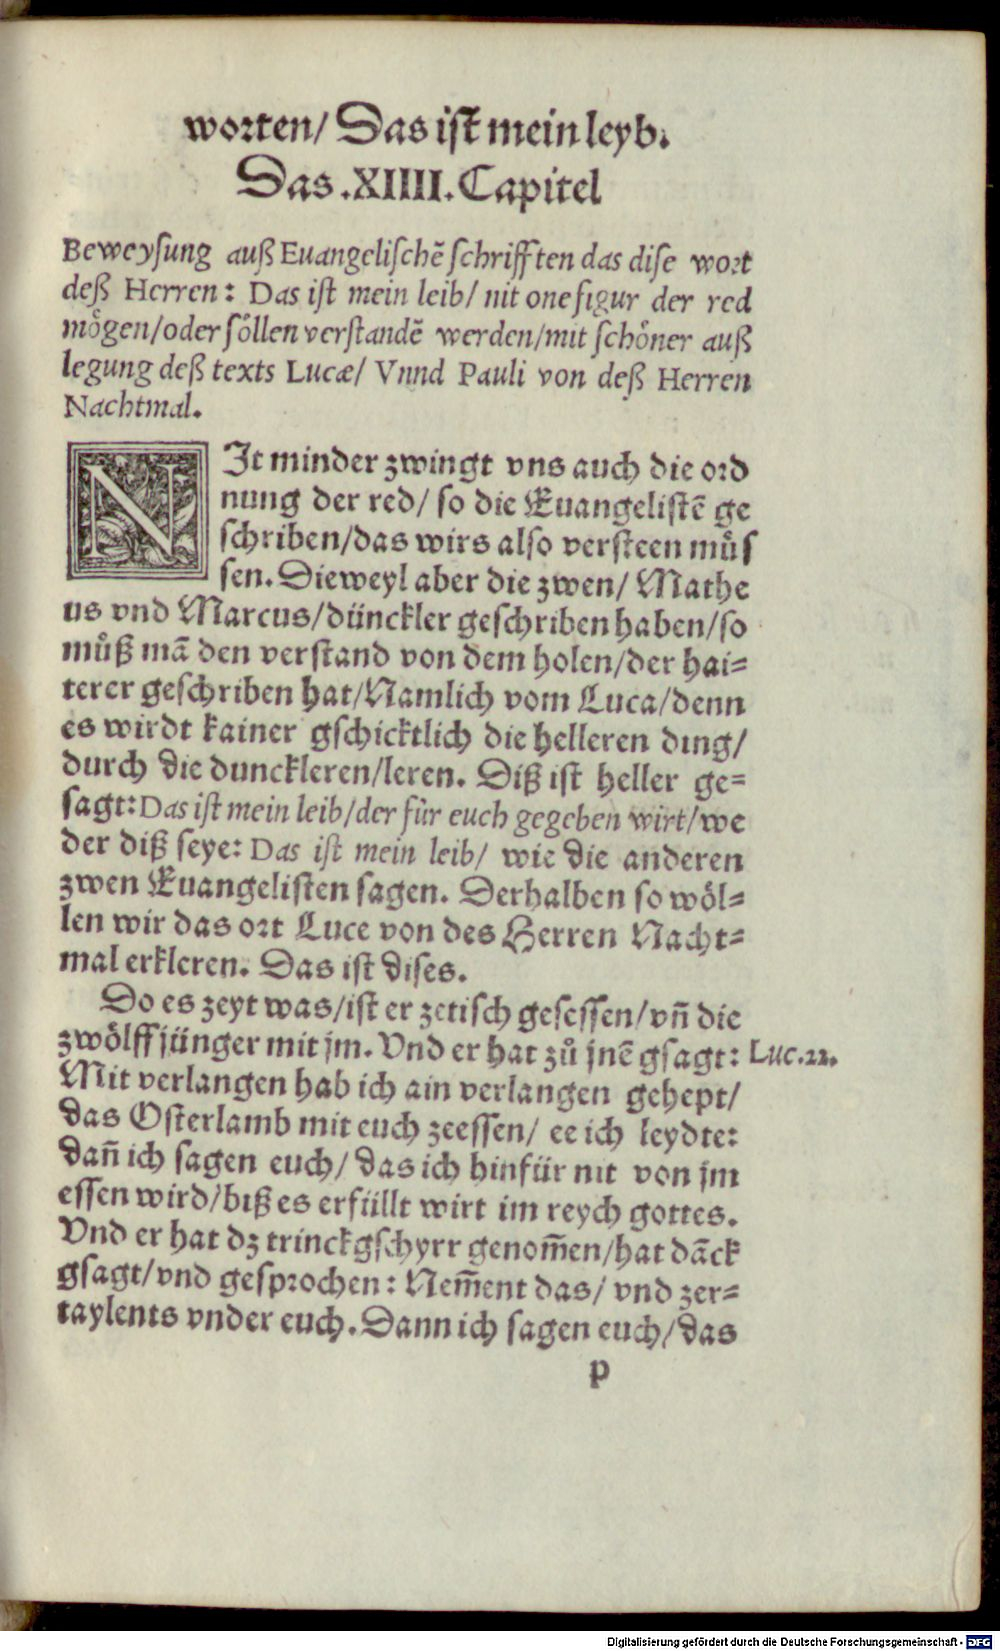 worten/ Das ist mein leyb.
Das .XIIII. Capitel
Beweysung auß Euangelischē schrifften das dise wort
deß Herren: Das ist mein leib/ nit one figur der red
moͤgen/oder soͤllen verstandē werden/mit schoͤner auß
legung deß texts Lucæ/ Vnnd Pauli von deß Herren
Nachtmal.
NJt minder zwingt vns auch die ord
nung der red/ so die Euangelistē ge
schriben/das wirs also versteen muͤs
sen. Dieweyl aber die zwen/ Mathe
us vnd Marcus/dünckler geschriben haben/so
muͦß mā den verstand von dem holen/der hai-
terer geschriben hat/Namlich vom Luca/denn
es wirdt kainer gschicktlich die helleren ding/
durch die dunckleren/leren. Diß ist heller ge-
sagt: Das ist mein leib/der für euch gegeben wirt/we
der diß seye: Das ist mein leib/ wie die anderen
zwen Euangelisten sagen. Derhalben so wöl-
len wir das ort Luce von des Herren Nacht-
mal erkleren. Das ist dises.
Do es zeyt was/ist er zetisch gesessen/vn̄ die
zwölff jünger mit jm. Vnd er hat zuͦ jnē gsagt:
Luc.22.
Mit verlangen hab ich ain verlangen gehept/
das Osterlamb mit euch zeessen/ ee ich leydte:
dan̄ ich sagen euch/ das ich hinfür nit von jm
essen wird/biß es erfüllt wirt im reych gottes.
Vnd er hat dz trinckgschyrr genom̄en/hat dāck
gsagt/vnd gesprochen: Nem̄ent das/ vnd zer-
taylents vnder euch. Dann ich sagen euch/das
p
Digitalisierung gefördert durch die Deutsche Forschungsgemeinschaft - DFG